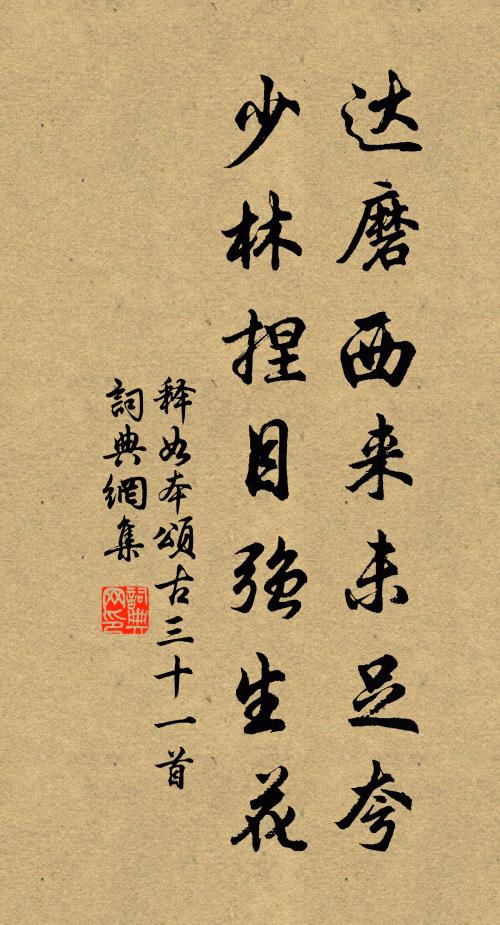 达磨西来未足夸
少林捏目强生花
释如本颂古三十一首
词典網集
詞典
网印